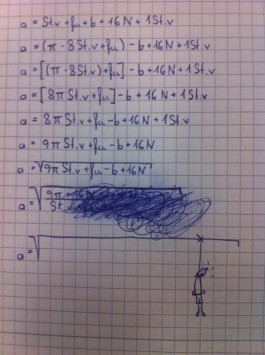 a = St.v + fμ + b + 16N + 1St.v
a = (π · 8St.v + fμ) - b + 16N + 1St.v
a = [(π · 8St.v + fμ] - b + 16N + 1St.v
a = [8πSt.v + fμ] - b + 16N + 1St.v
a = 8πSt.v + fμ - b + 16N + 1St.v
a = 9πSt.v + fμ - b + 16N
a = √9πSt.v + fμ - b + 16N
a = √9π + 16N
St.v
a = √